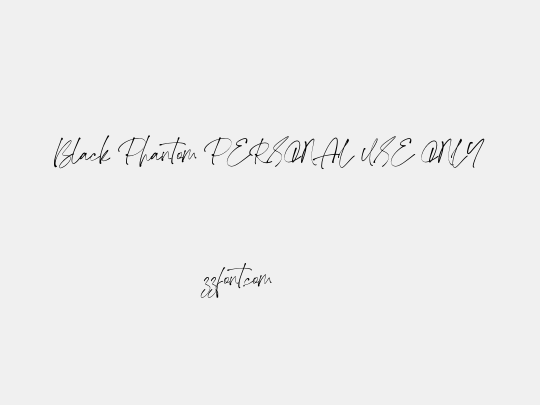 Black Phantom PERSONAL USE ONLY
zzfont.com